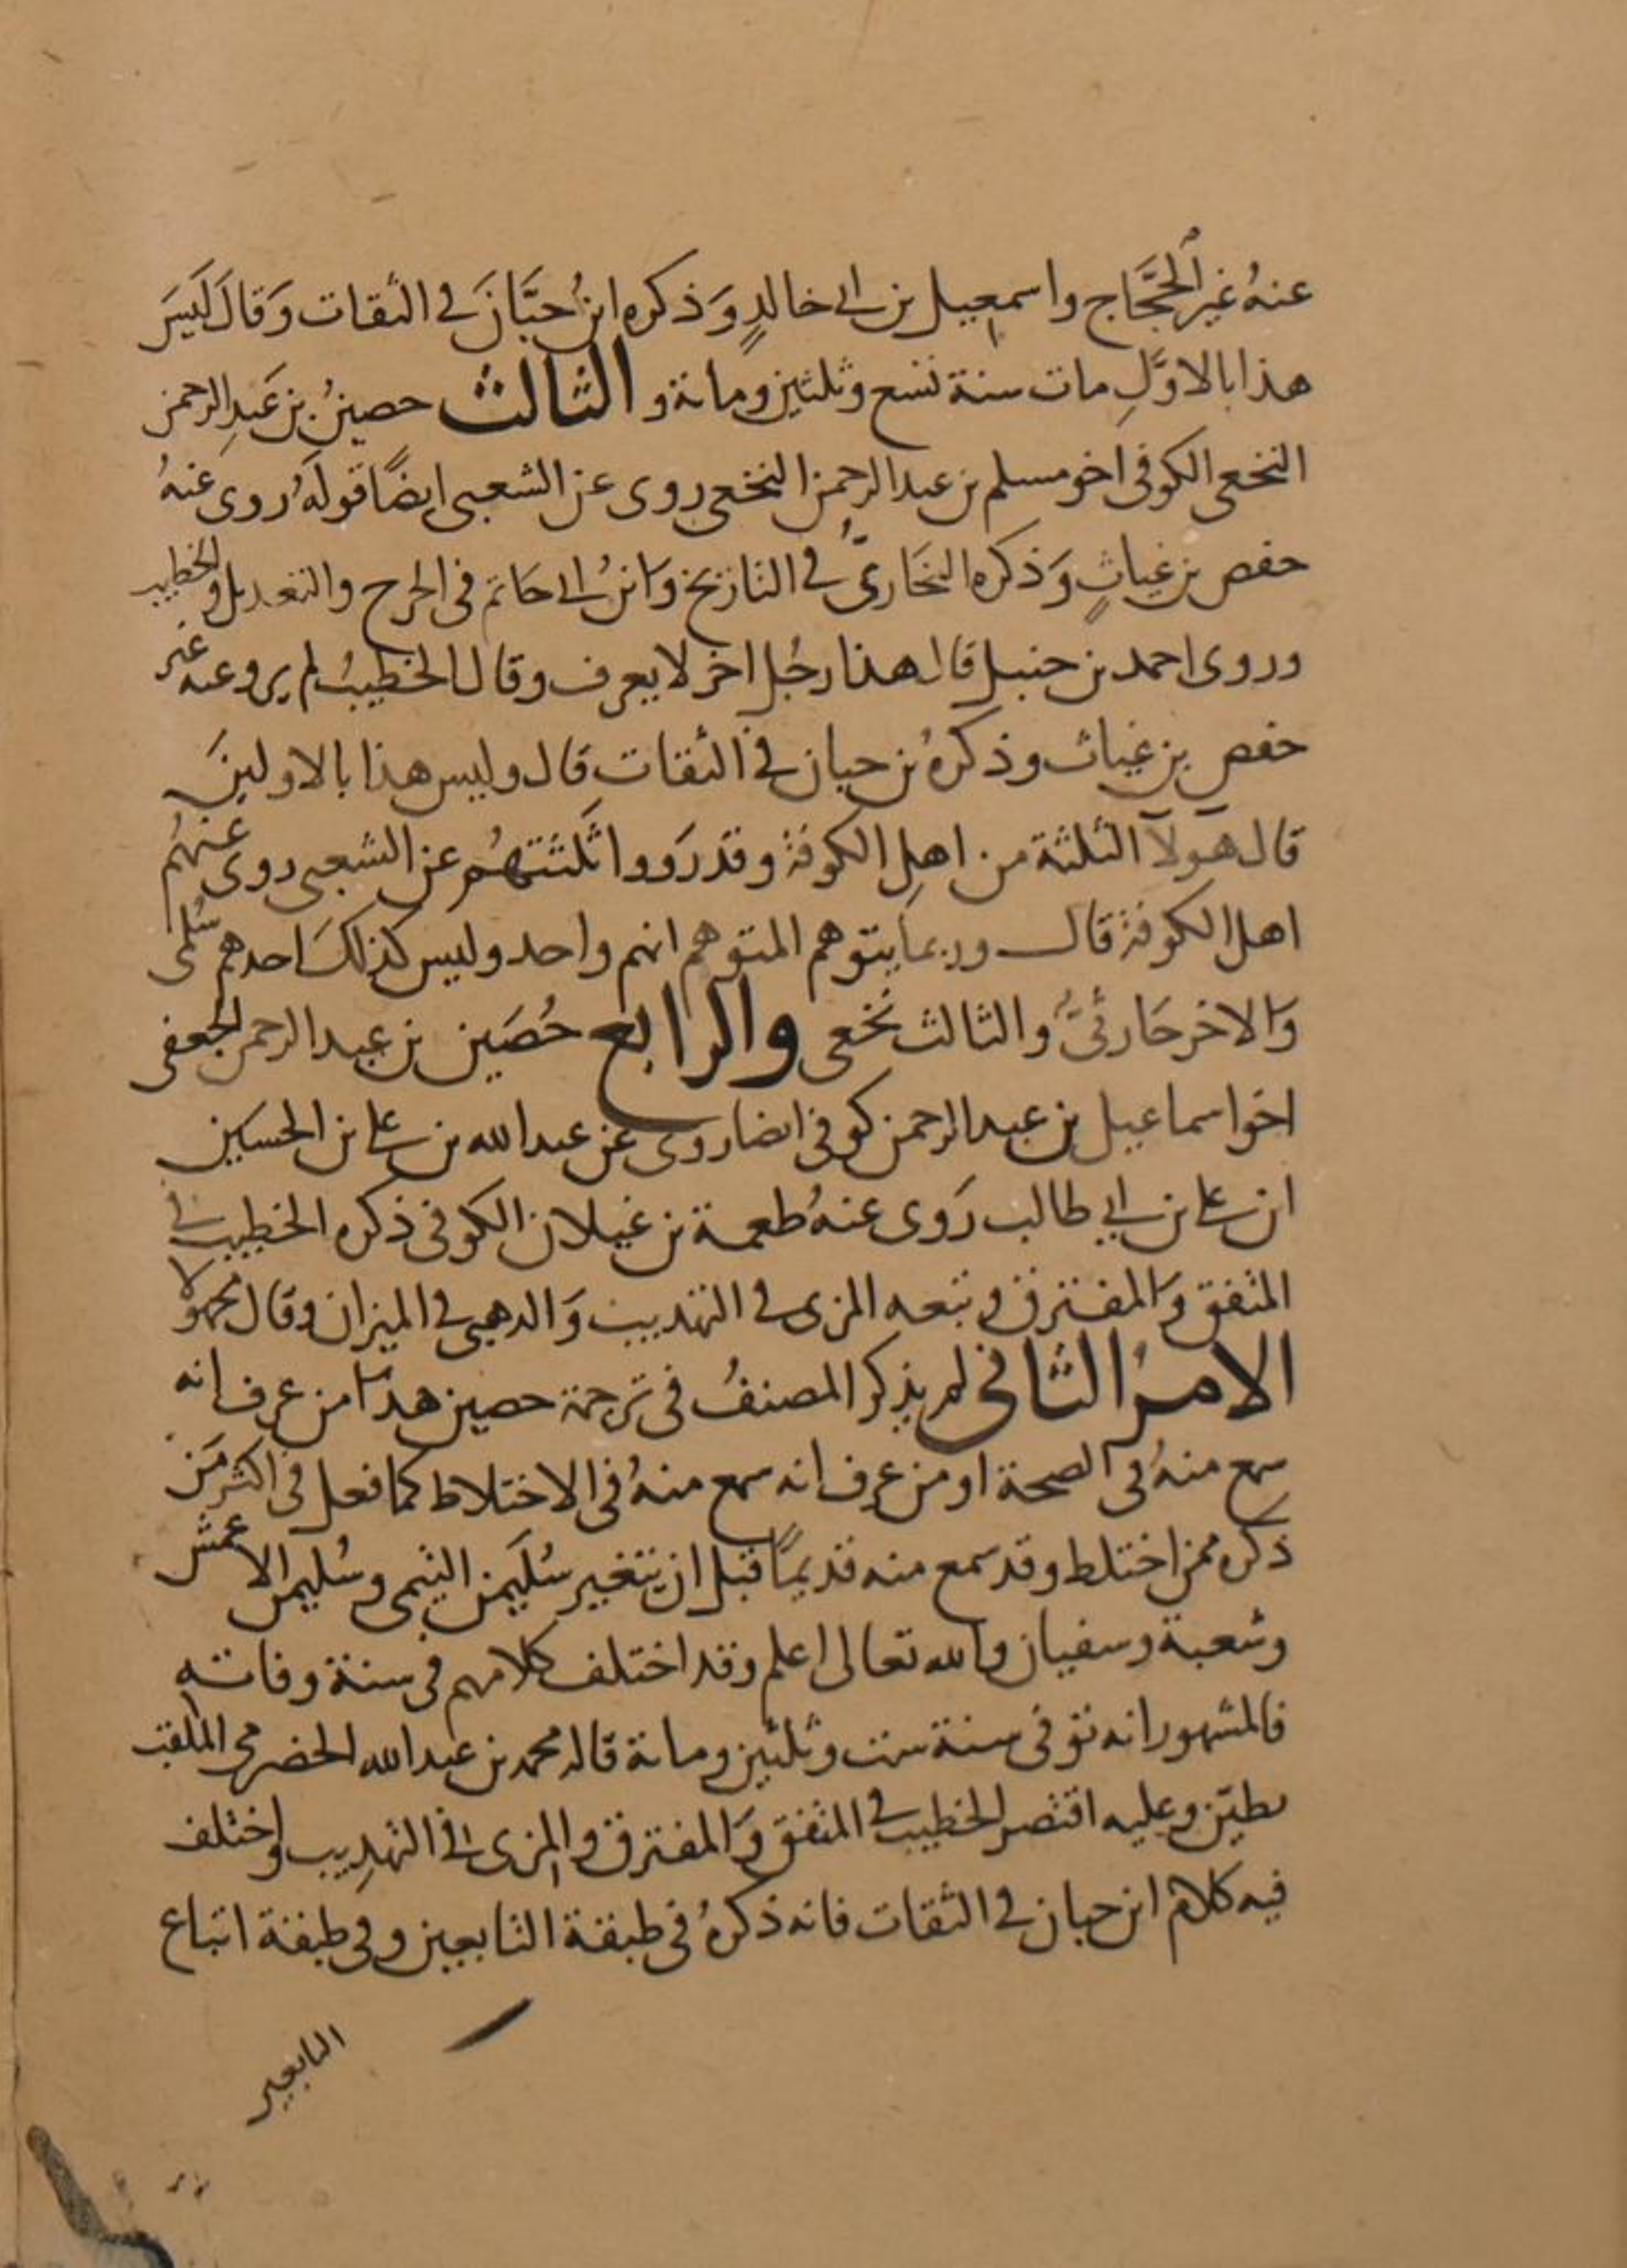 عنهُ غير الحجَّاج واسمعيل بن ابى خالدٍ وَذكره ابنُ حبَّانَ فى الثقات وَقالَ لَيسَ
هذا بالاوَّلِ مات سنة تسع وثلثين ومائة و الثالث حصينُ بن عَبدِ الرحمن
النخعى الكوفى اخو مسلم بن عبد الرحمن النخعى روى عن الشعبى ايضًا قولَهُ روى عنهُ
حفص بن غياثٍ وَذكره البخَارىُّ فى التاريخ وَابنُ ابى حَاتم فى الجرح والتعديل والخطيب
وروى احمد بن حنبل قال هذا رجُل اخر لا يعرف وقال الخطيبُ لم يرو عنه غير
حفص بن غياث وذكرهُ بن حبان فى الثقات قال وليس هذا بالاولينَ
قال هولآ الثلثة من اهلِ الكوفة وقد رَووا ثَلثتهُم عن الشعبى روى عنهُم
اهل الكوفة قال وربما يتوهم المتوهم انهم واحد وليس كذلكَ احدهم سُلمى
وَالاخر حَارثىُّ والثالث نخعى والرابع حُصَين بن عبد الرحمن الجعفى
اخو اسماعيل بن عبد الرحمن كوفى ايضا روى عن عبد الله بن على بن الحسين
ابن على بن ابى طالب رَوى عنهُ طعمة بن غيلان الكوفى ذكره الخطيب فى
المتفق وَالمفترق وتبعه المزى فى التهذيب وَالذهبى فى الميزان وقال مجهولا
الامرُ الثانى لم يذكر المصنفُ فى ترجمة حصين هذا من عرف انه
سمع منهُ فى الصحة او من عرف انه سمع منهُ فى الاختلاط كما فعل فى اكثر مَن
ذكره ممن اختلط وقد سمع منه قديمًا قبل ان يتغير سُليَمن التيمى وسُليمن الاعمش
وشعبة وسفيان والله تعالى اعلم وقد اختلف كلامهم فى سنة وفاته
فالمشهور انه توفى سنة ست وثلثين ومائة قاله محمد بن عبد الله الحضرمى الملقب
بطيّن وعليه اقتصر الخطيب فى المتفق وَالمفترق والمزى فى التهذيب واختلف
فيه كلام ابن حبان فى الثقات فانه ذكرهُ فى طبقة التابعين وفى طبقة اتباع
التابعين